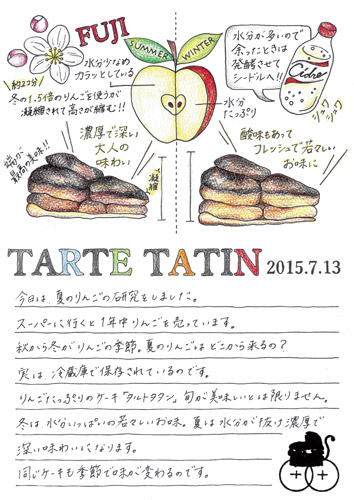 FUJI
SUMMER
WINTER
水分少なめ
カラッとしている
約2コ分
冬の1.5倍のりんごを使うが
凝縮されて高さが縮む!!
濃厚で深い
大人の
味わい
端っこが
最高の美味!!
凝縮
水分が多いので
余ったときは
発酵させて
シードルへ!!
Cidre
水分
たっぷり
酸味もあって
フレッシュで若々しい
お味に
TARTE TATIN 2015.7.13
今日は、夏のりんごの研究をしました。
スーパーに行くと1年中りんごを売っています。
秋から冬がりんごの季節。夏のりんごはどこから来るの?
実は、冷蔵庫で保存されているのです。
りんごたっぷりのケーキ「タルトタタン」旬が美味しいとは限りません。
冬は、水分いっぱいの若々しいお味。夏は水分が抜け濃厚で
深い味わいになります。
同じケーキも季節で味が変わるのです。